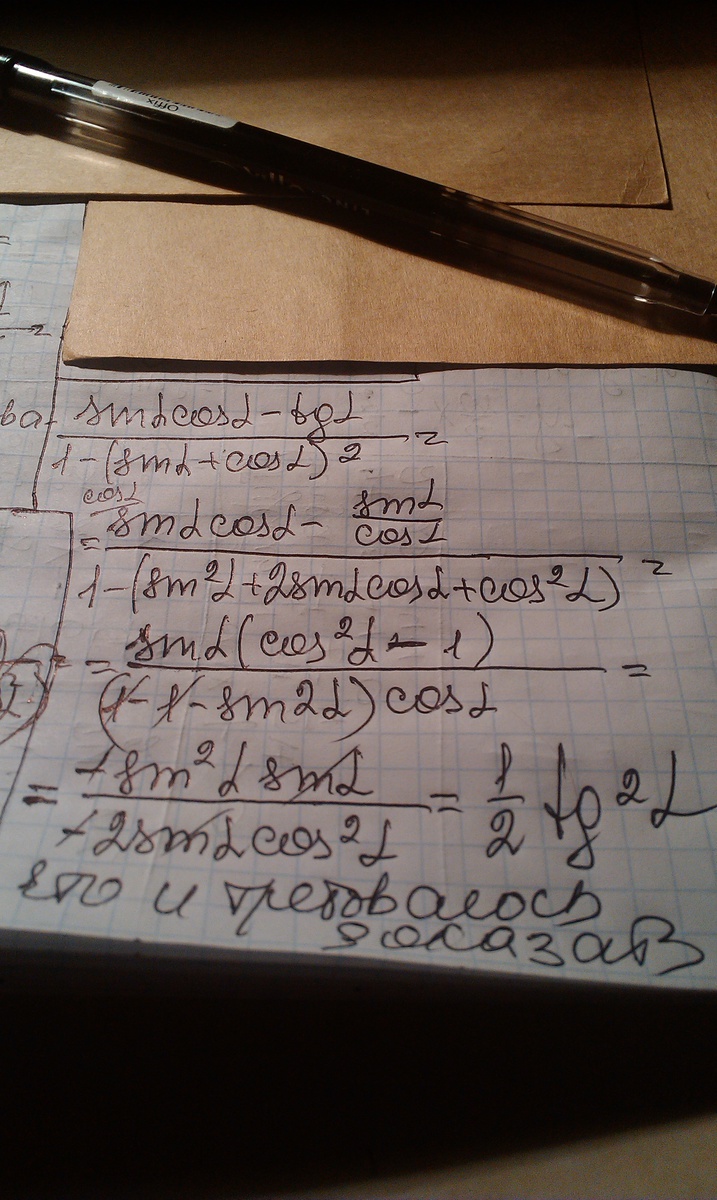 Offix
sinαcosα - tgα
1-(sinα+cosα)² =
cosα
= sinαcosα - sinα/cosα
1-(sin²α+2sinαcosα+cos²α) =
= sinα(cos²α - 1)
(1-1-sin2α)cosα =
= -sin²α sinα / -2sinαcos²α = 1/2 tg²α
что и требовалось
доказать